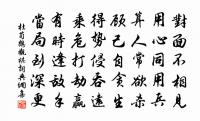 對面不相見
用心同用兵
算人常欲殺
顧己自貪生
得勢侵吞遠
乘危打劫贏
有時逢敵手
當局到深更
杜荀鶴觀棋詞典網集